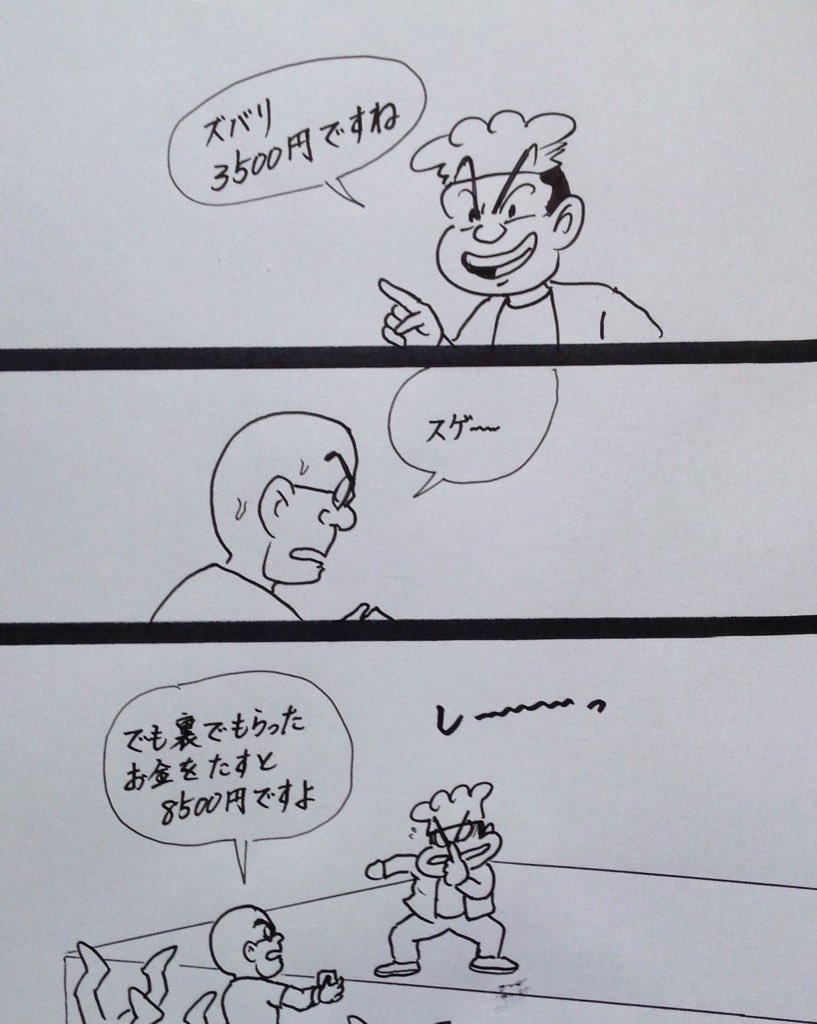 ズバリ
3500円ですね
スゲ〜
しーーーっ
でも裏でもらった
お金をたすと
8500円ですよ